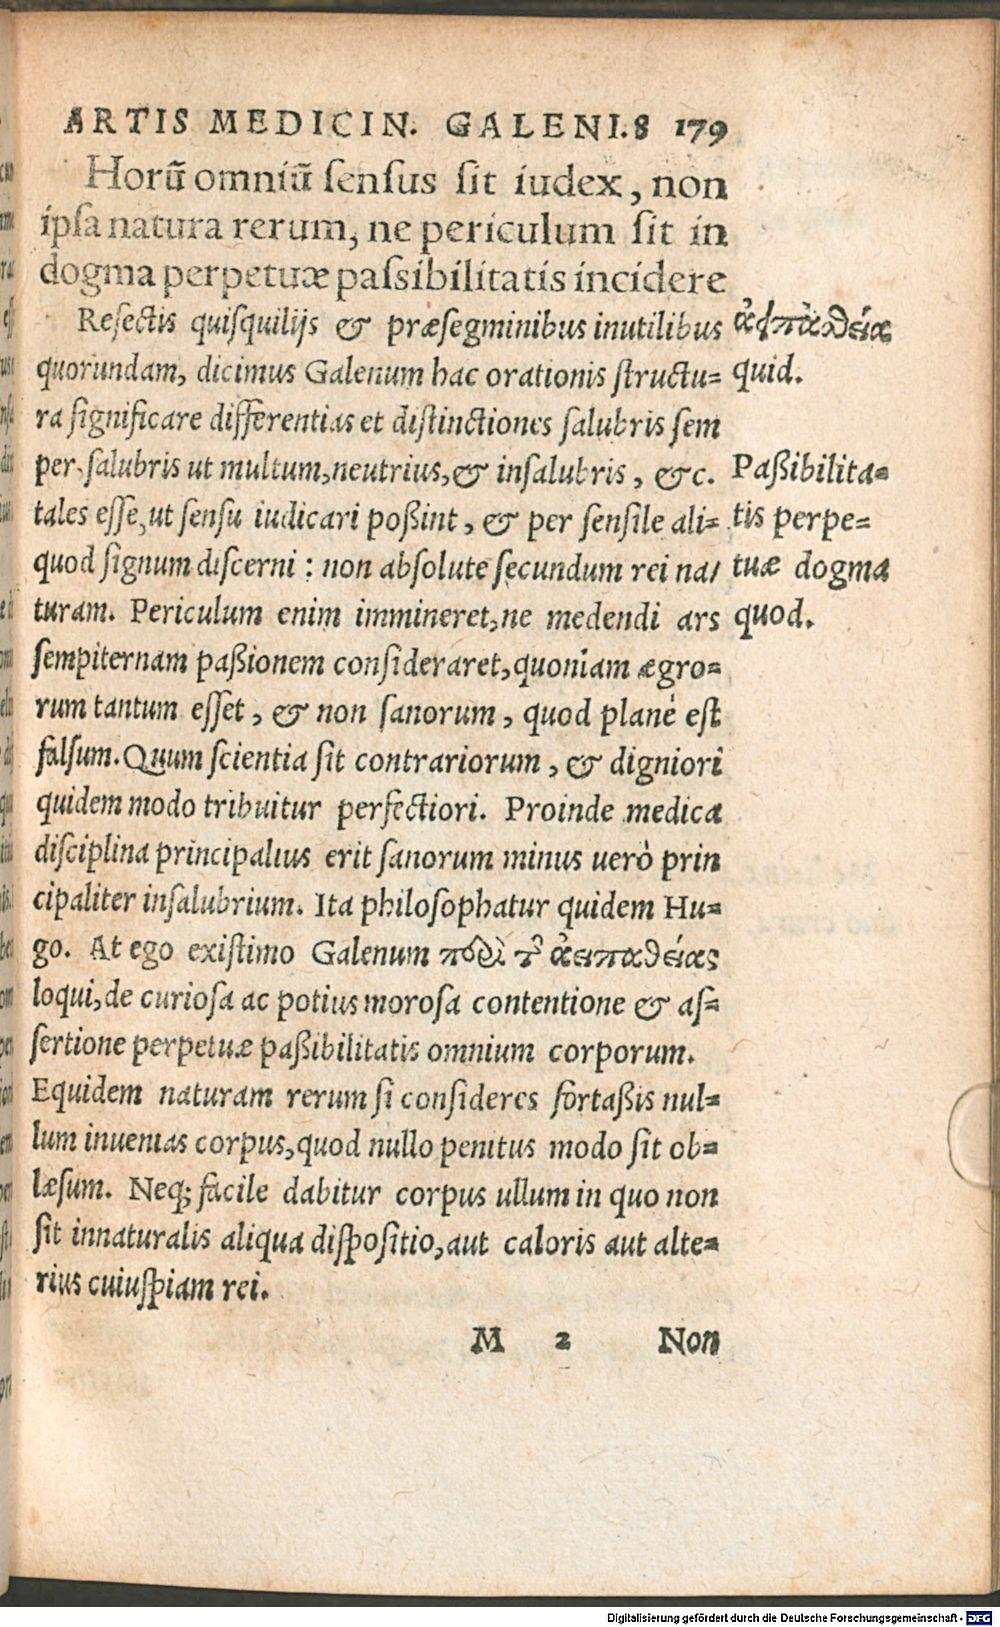 ARTIS MEDICIN. GALENI. 8 179
Horũ omniũ ſenſus ſit iudex, non
ipſa natura rerum, ne periculum ſit in
dogma perpetuæ paſsibilitatis incidere
Reſectis quiſquilijs & præſegminibus inutilibus
quorundam, dicimus Galenum hac orationis ſtructu=
ra ſignificare differentias et diſtinctiones ſalubris ſem
per, ſalubris ut multum, neutrius, & inſalubris, &c.
tales eſſe, ut ſenſu iudicari poßint, & per ſenſile ali=
quod ſignum diſcerni: non abſolute ſecundum rei na/
turam. Periculum enim immineret, ne medendi ars
ſempiternam paßionem conſideraret, quoniam ægro=
rum tantum eſſet, & non ſanorum, quod planè eſt
falſum. Quum ſcientia ſit contrariorum, & digniori
quidem modo tribuitur perfectiori. Proinde medica
diſciplina principalius erit ſanorum minus uerò prin
cipaliter inſalubrium. Ita philoſophatur quidem Hu=
go. At ego existimo Galenum περὶ τ͂ ἀειπαθείας
loqui, de curioſa ac potius moroſa contentione & aſ=
ſertione perpetuæ paßibilitatis omnium corporum.
Equidem naturam rerum ſi conſideres fortaßis nul=
lum inuenias corpus, quod nullo penitus modo ſit ob=
læſum. Neq; facile dabitur corpus ullum in quo non
ſit innaturalis aliqua diſpoſitio, aut caloris aut alte=
rius cuiuſpiam rei.
M 2 Non
quid.
Paßibilita=
tis perpe=
tuæ dogma
quod.
Digitalisierung gefördert durch die Deutsche Forschungsgemeinschaft - DFG